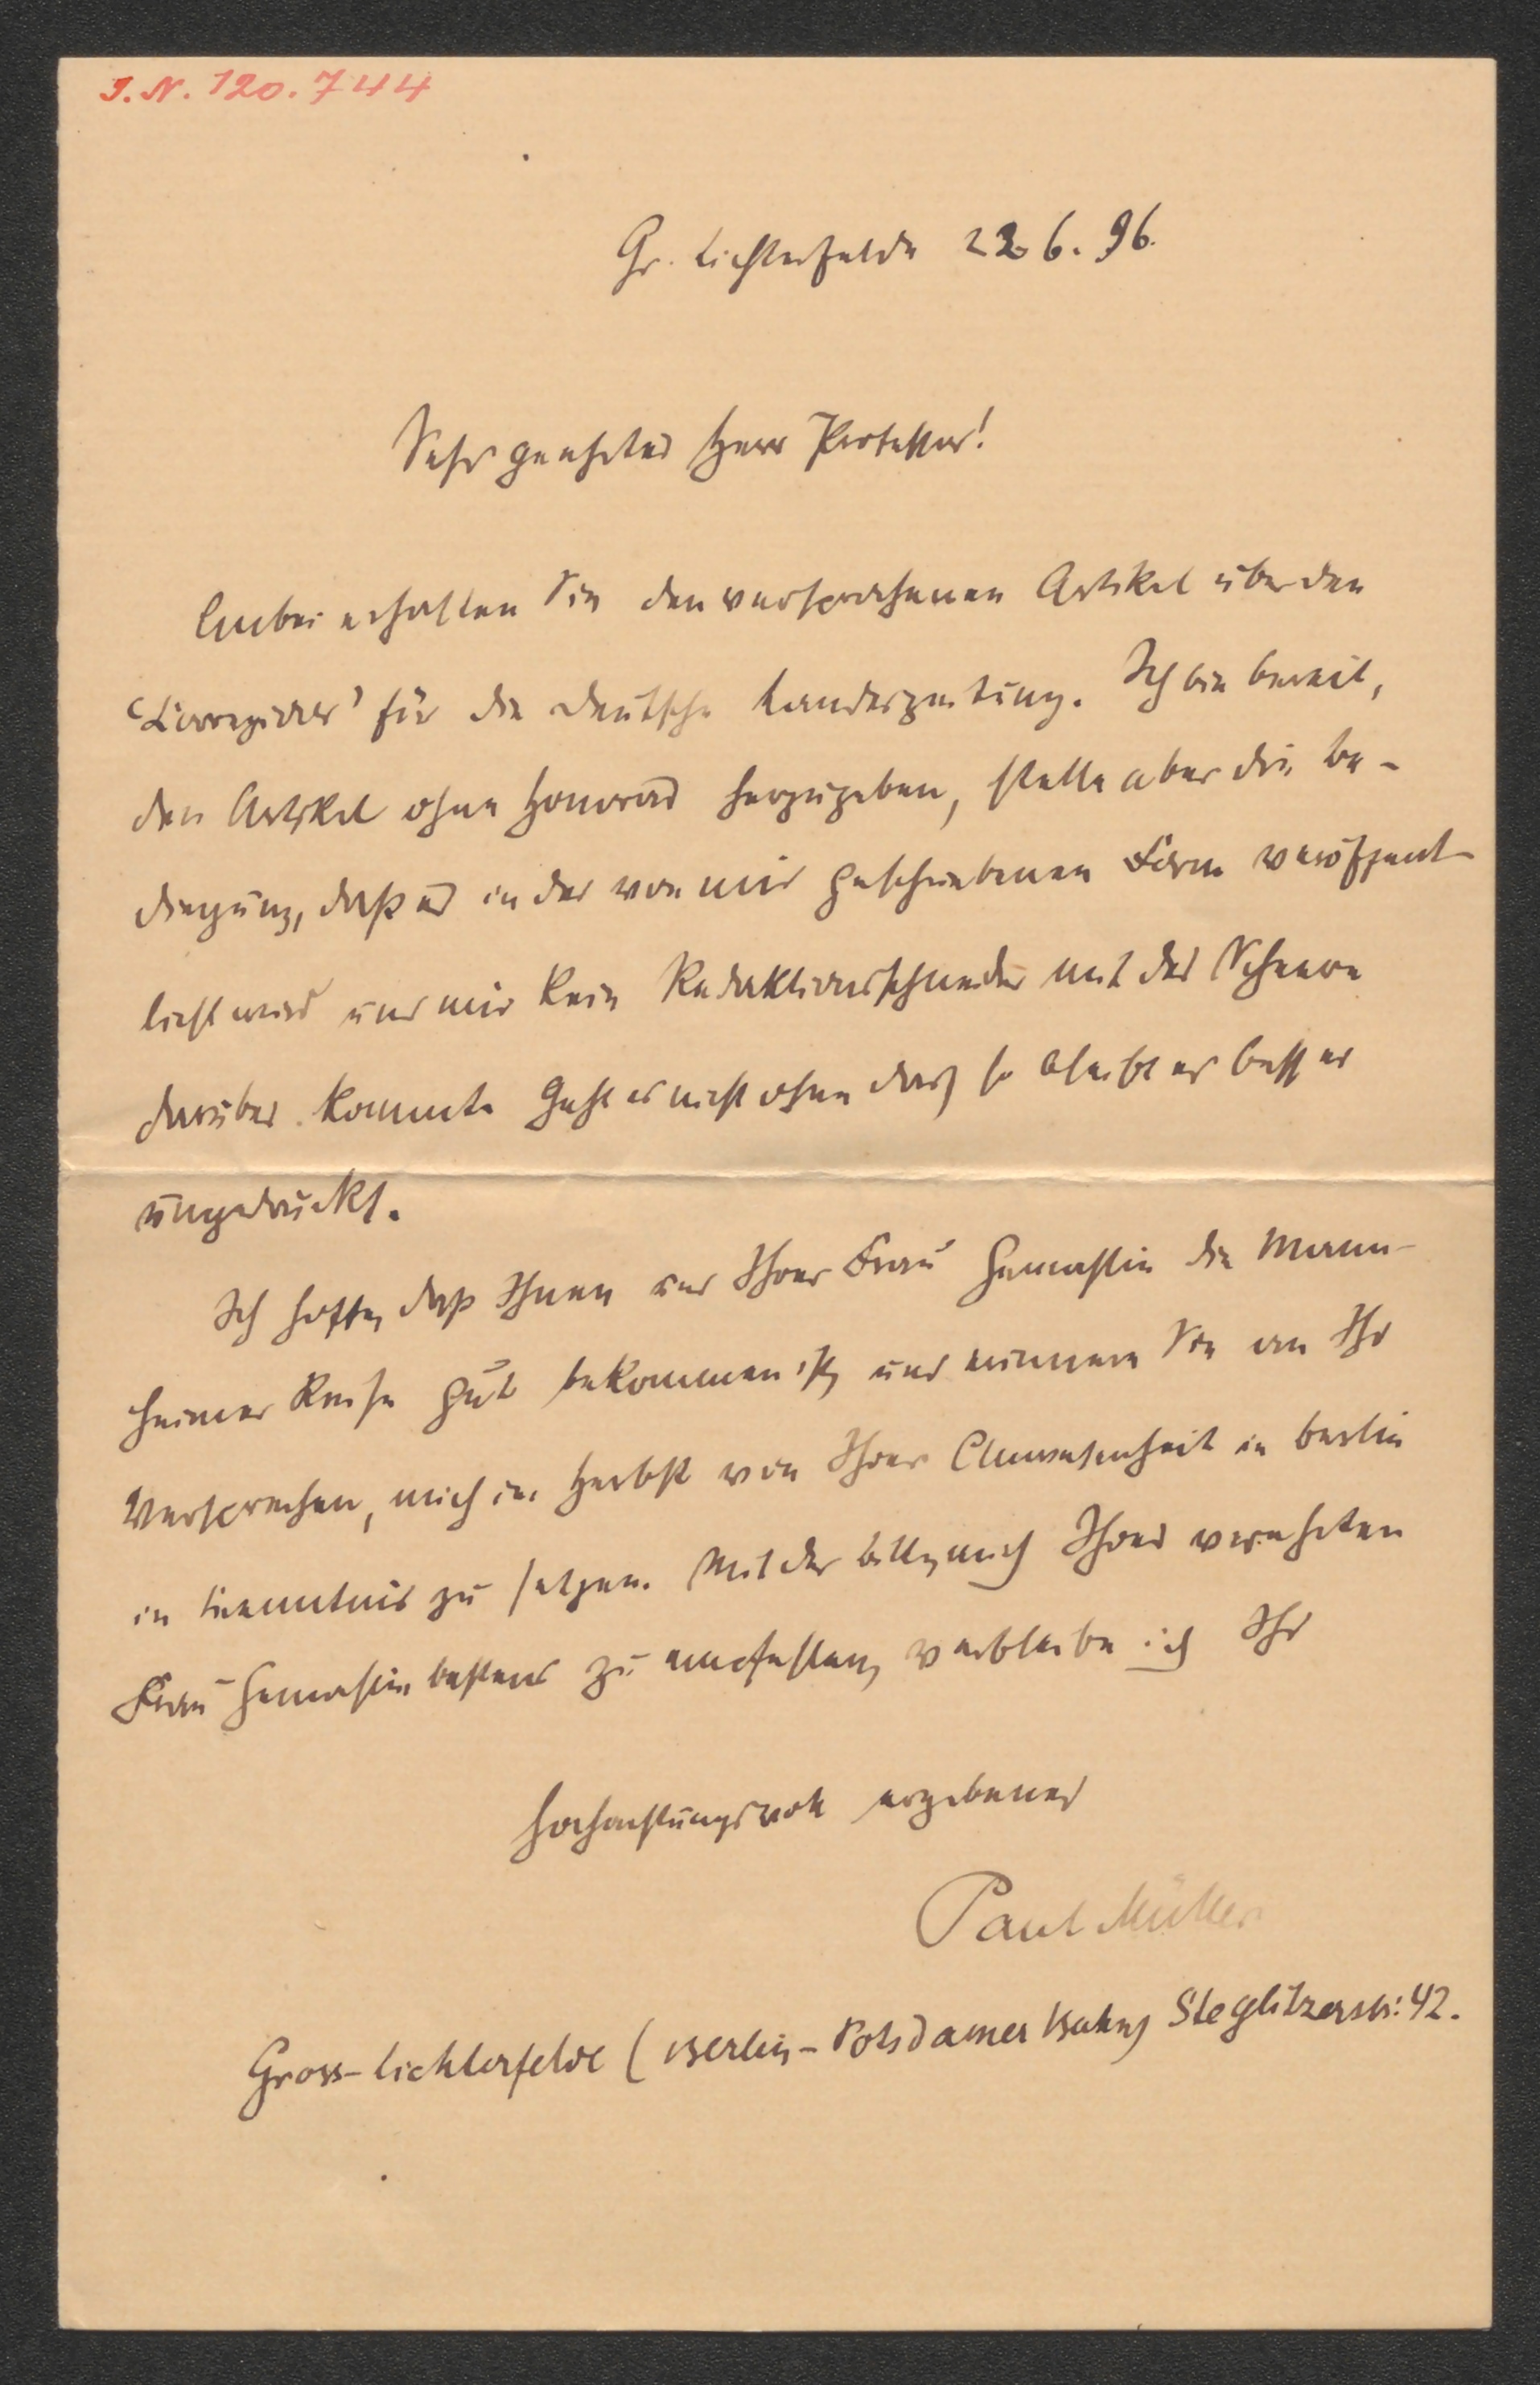 J. N. 120.744
Gr. Lichterfelde 22 6. 96.
Sehr geehrter Herr Professor!
Anbei erhalten Sie den versprochenen Artikel über den
‘Corregidor’ für die deutsche Landeszeitung. Ich bin bereit,
den Artikel ohne Honorar herzugeben, stelle aber die Be-
dingung, daß er in der von mir geschriebenen Form veröffent-
licht wird und mir kein Redaktionsschneider mit der Scheere
darüber kommt. Geht es nicht ohne das, so bleibt er besser
ungedruckt.
Ich hoffe, daß Ihnen und Ihrer Frau Gemahlin die Mann-
heimer Reise gut bekommen ist, und erinnere Sie an Ihr
Versprechen, mich im Herbst von Ihrer Anwesenheit in Berlin
in Kenntnis zu setzen. Mit der Bitte, mich Ihrer verehrten
Frau Gemahlin bestens zu empfehlen, verbleibe ich Ihr
hochachtungsvoll ergebener
Paul Müller
Gross-Lichterfelde (Berlin-Potsdamer Bahn) Steglitzerstr: 42.